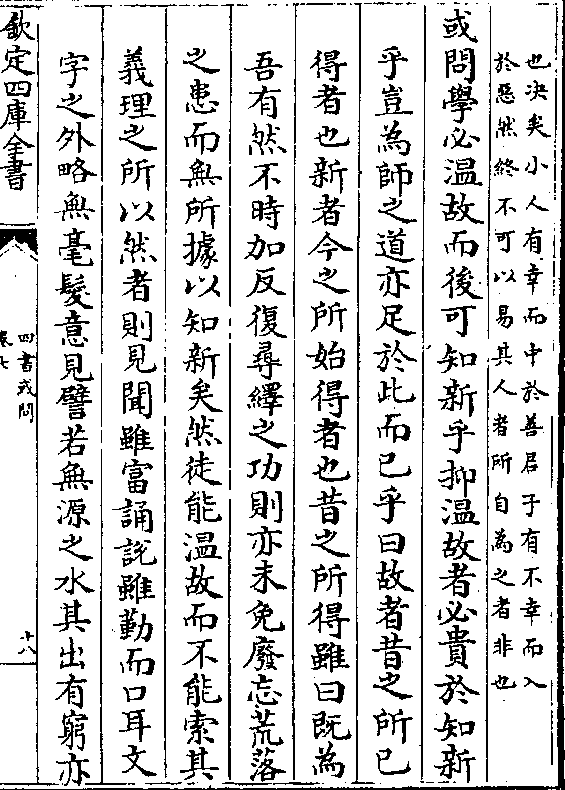 也決矣小人有幸而中於善君子有不幸而入
於惡然終不可以易其人者所自為之者非也
或問學必温故而後可知新乎抑温故者必貴於知新
乎豈為師之道亦足於此而已乎曰故者昔之所已
得者也新者今之所始得者也昔之所得雖曰既為
吾有然不時加反復尋繹之功則亦未免廢忘荒落
之患而無所據以知新矣然徒能温故而不能索其
義理之所以然者則見聞雖富誦說雖勤而口耳文
字之外略無毫髮意見譬若無源之水其出有窮亦
欽定四庫全書
四書或問
卷七
十八